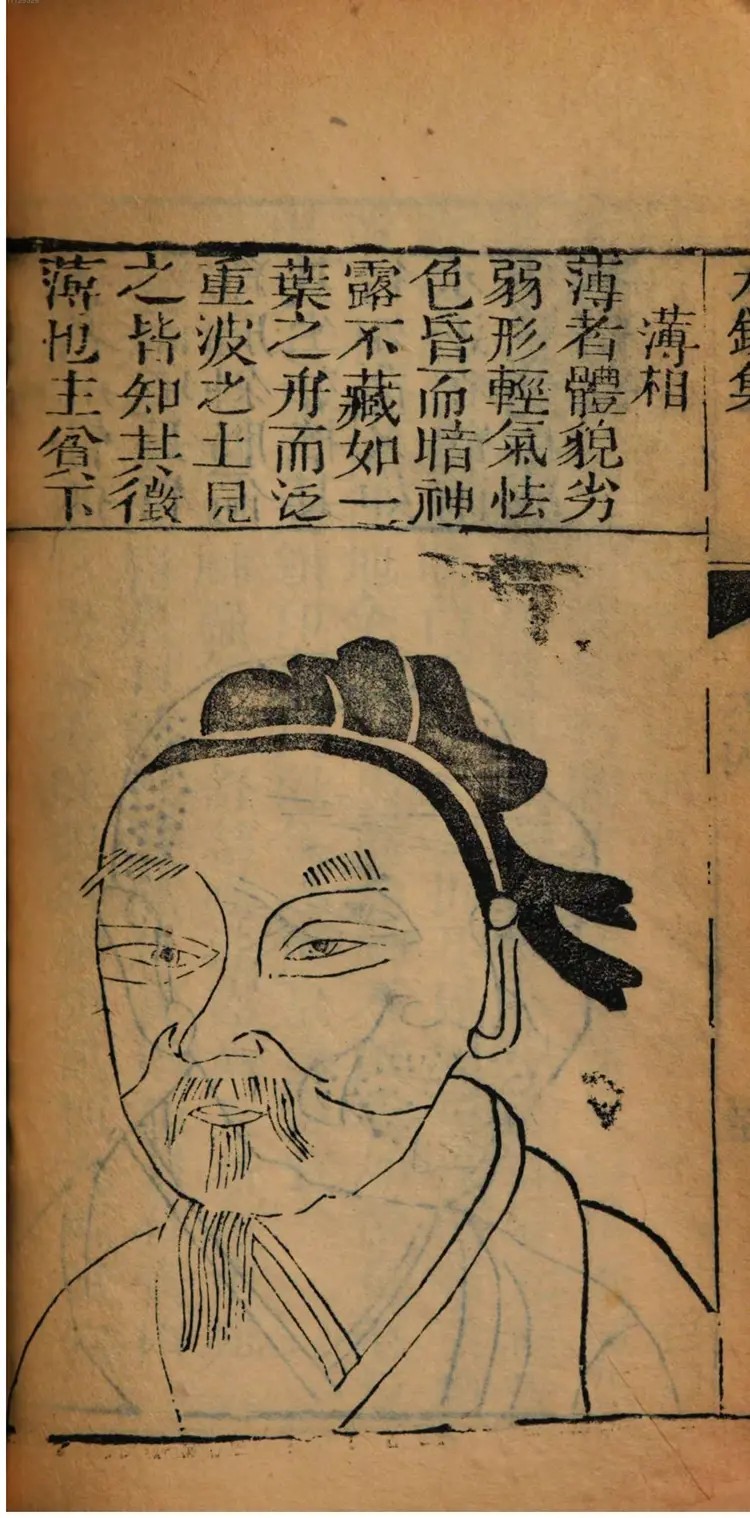 水鏡集
薄相
薄者體貌劣
弱形輕氣怯
色昏而暗神
露不藏如一
葉之舟而泛
重波之上見
之皆知其微
薄也主貧下